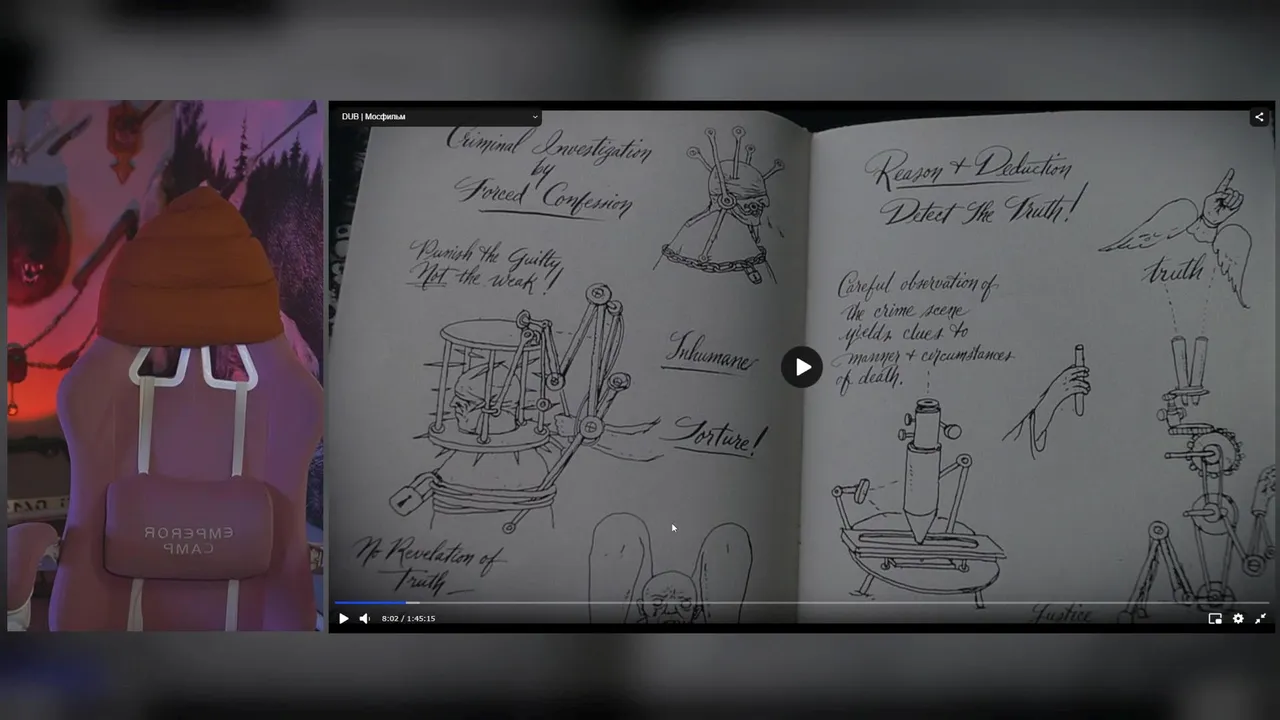 DUB | Мосфильм
EMPEROR
CAMP
Criminal Investigation
by
Forced Confession
Punish the Guilty
Not the weak!
Inhumane
Torture!
No Revelation of
Truth
Reason + Deduction
Detect The Truth!
truth
Careful observation of
the crime scene
yields clues to
manner + circumstances
of death.
Justice
8:02 / 1:45:15